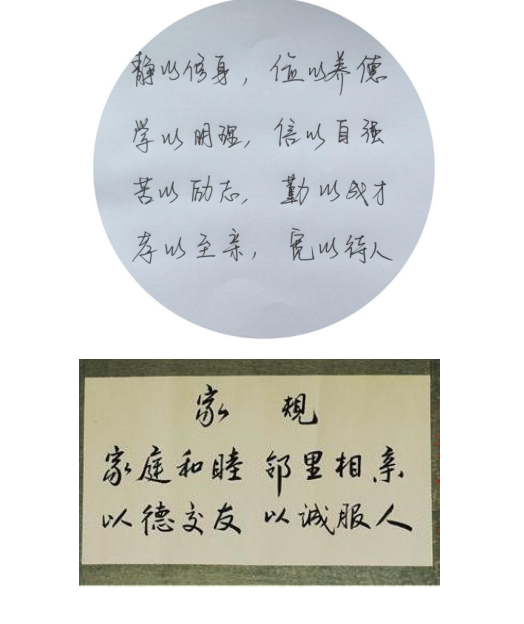 静以修身，俭以养德
学以明理，信以自强
苦以励志，勤以成才
孝以至亲，宽以待人
家 规
家庭和睦 邻里相亲
以德交友 以诚服人